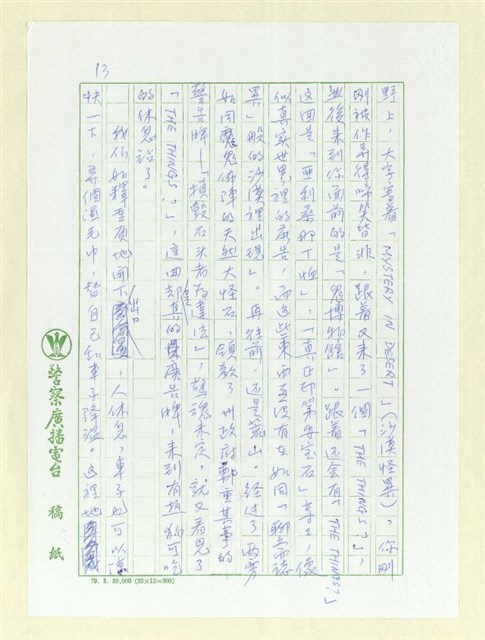 13
野上，大字書著「MYSTERY IN DESERT」(沙漠怪異)，你剛
剛被作弄得啼笑皆非，跟着又來了一個「THE THINGS?」，
然後來到你面前的是「鬼博物館」。跟着还会有「THE THINGS?」
這回是「亞利桑那丁
似真实世界裡的廣告，而這些東西至沒有在如同「聊齋誌
異」般的沙漠裡出現」。再往前，还是荒山。經过了兩旁
如同魔鬼佈陣的天然大怪石，領教了州政府鄭重其事的
警告牌—「損毀石头者為違法」，驚魂未定，就又看見了
「THE THINGS?」，這回却真的是廣告牌，來到有熱狗可吃
的休息站了。
我们如釋重負地開下出口，人休息，車子也可以涼
快一下，弄個濕毛巾，替自己和車子降溫。这裡地
警察廣播電台 稿紙
79. 3. 50,000 (25×12=300)